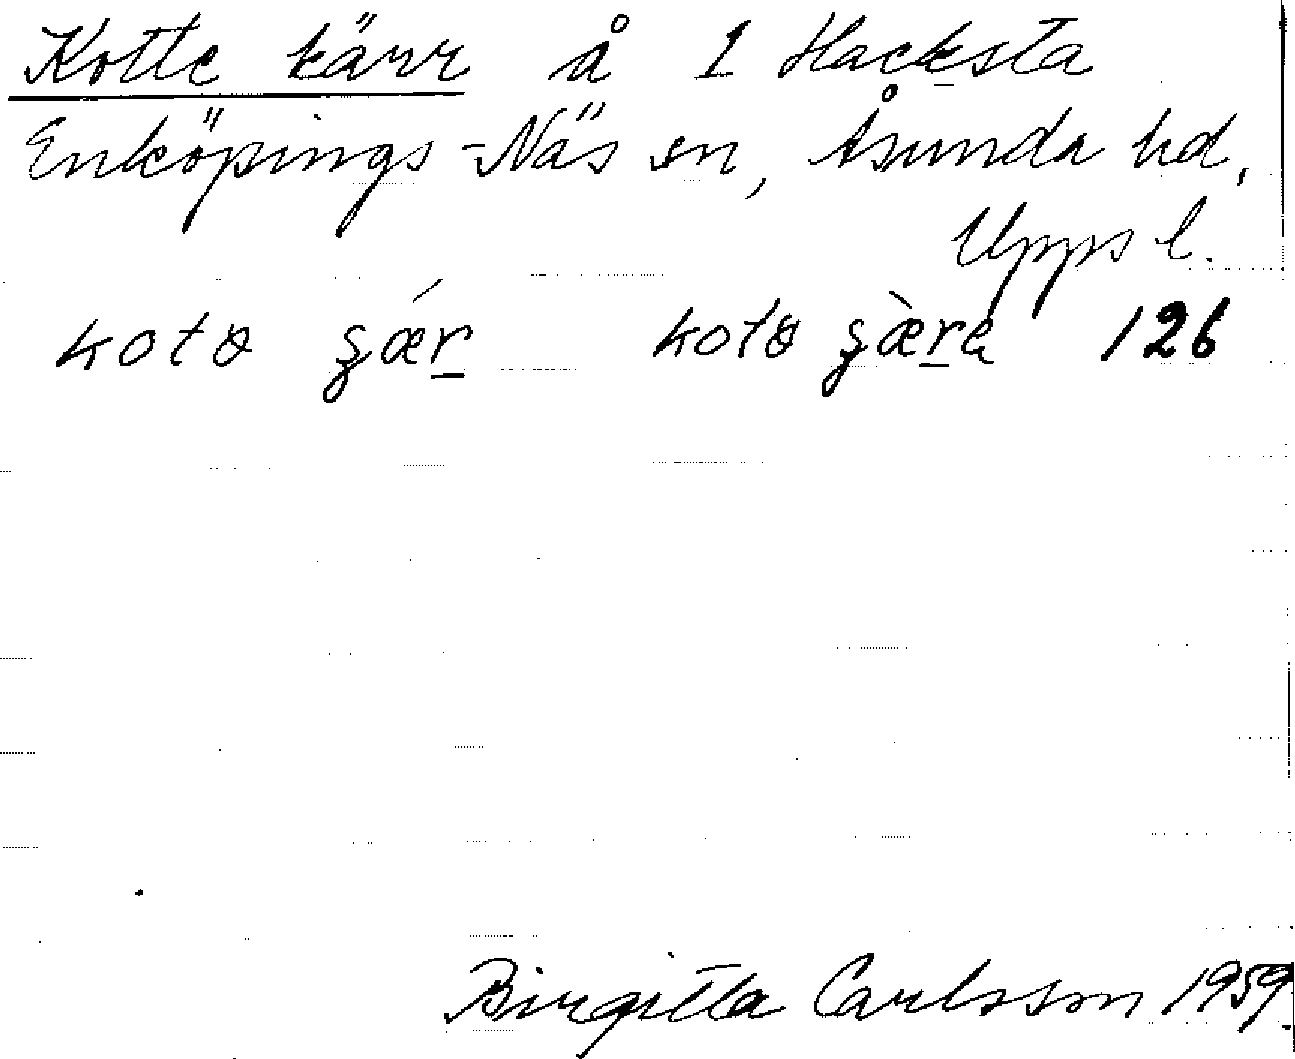 Kotte kärr å 1 Hacksta
Enköpings-Näs sn, Åsunda hd,
Upps l.
kotɵ ʂǽr kotɵ ʂæ̀ra 126
Birgitta Carlsson 1959.